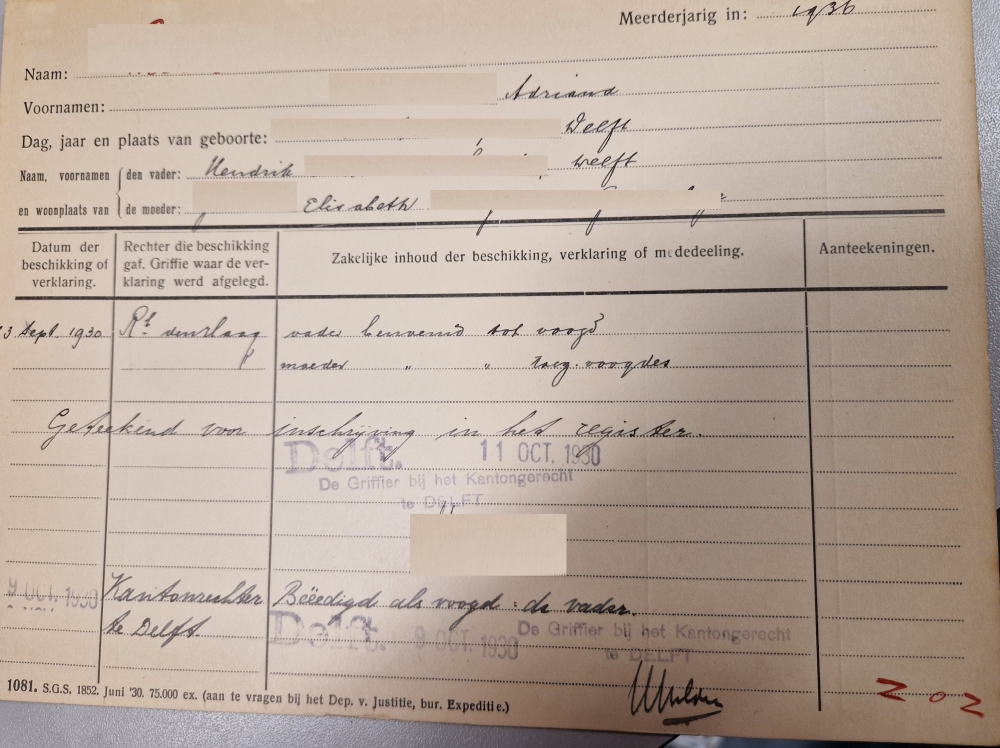 Meerderjarig in: 1936
Naam:
Voornamen: Adriand
Dag, jaar en plaats van geboorte: Delft
Naam, voornamen en woonplaats van
den vader: Hendrik Delft
de moeder: Elisabeth
Datum der beschikking of verklaring.
Rechter die beschikking gaf. Griffie waar de verklaring werd afgelegd.
Zakelijke inhoud der beschikking, verklaring of mededeeling.
Aanteekeningen.
3 Sept. 1930 Rb. den Haag vader benoemd tot voogd
moeder " " toez. voogdes
Geteekend voor inschrijving in het register.
Delft. 11 OCT. 1930
De Griffier bij het Kantongerecht
te DELFT
9 OCT. 1930 Kantonrechter Beëedigd als voogd: de vader.
te Delft.
Delft. 9 OCT. 1930 De Griffier bij het Kantongerecht
te DELFT
1081. S.G.S. 1852. Juni '30. 75.000 ex. (aan te vragen bij het Dep. v. Justitie, bur. Expeditie.)
Z O Z